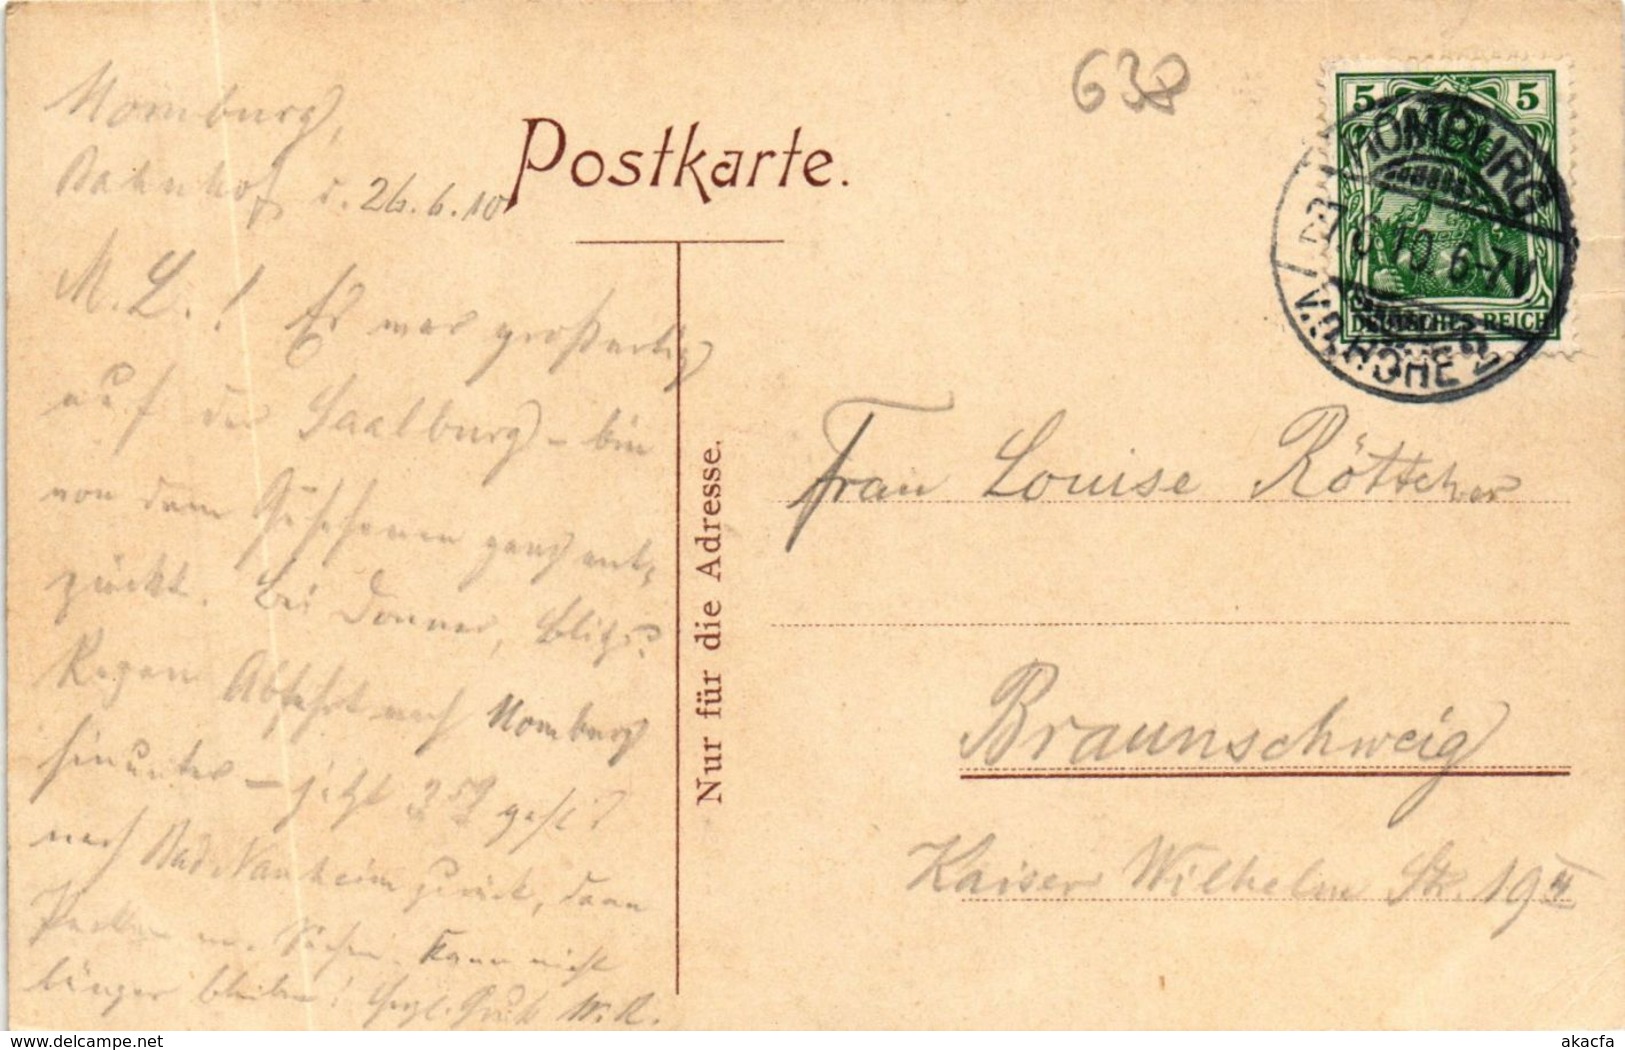 638
Postkarte.
5 5
HOMBURG
27.6.10 6-7V.
V.D.HÖHE 2
DEUTSCHES REICH
Homburg,
Bahnhof, d. 26.6.10
M. L.! Es war großartig
auf der Saalburg – bin
von dem Gesehenen ganz ent-
zückt. Bei Donner, Blitz u.
Regen Abfahrt nach Homburg
hinunter – jetzt 3 59 geht's
nach Bad Nauheim zurück, dann
Packen u. Kann nicht
länger bleiben! Herzl. Gruß W. R.
Nur für die Adresse.
Frau Louise Röttcher
Braunschweig
Kaiser Wilhelm Str. 19 II
delcampe.net
akacfa